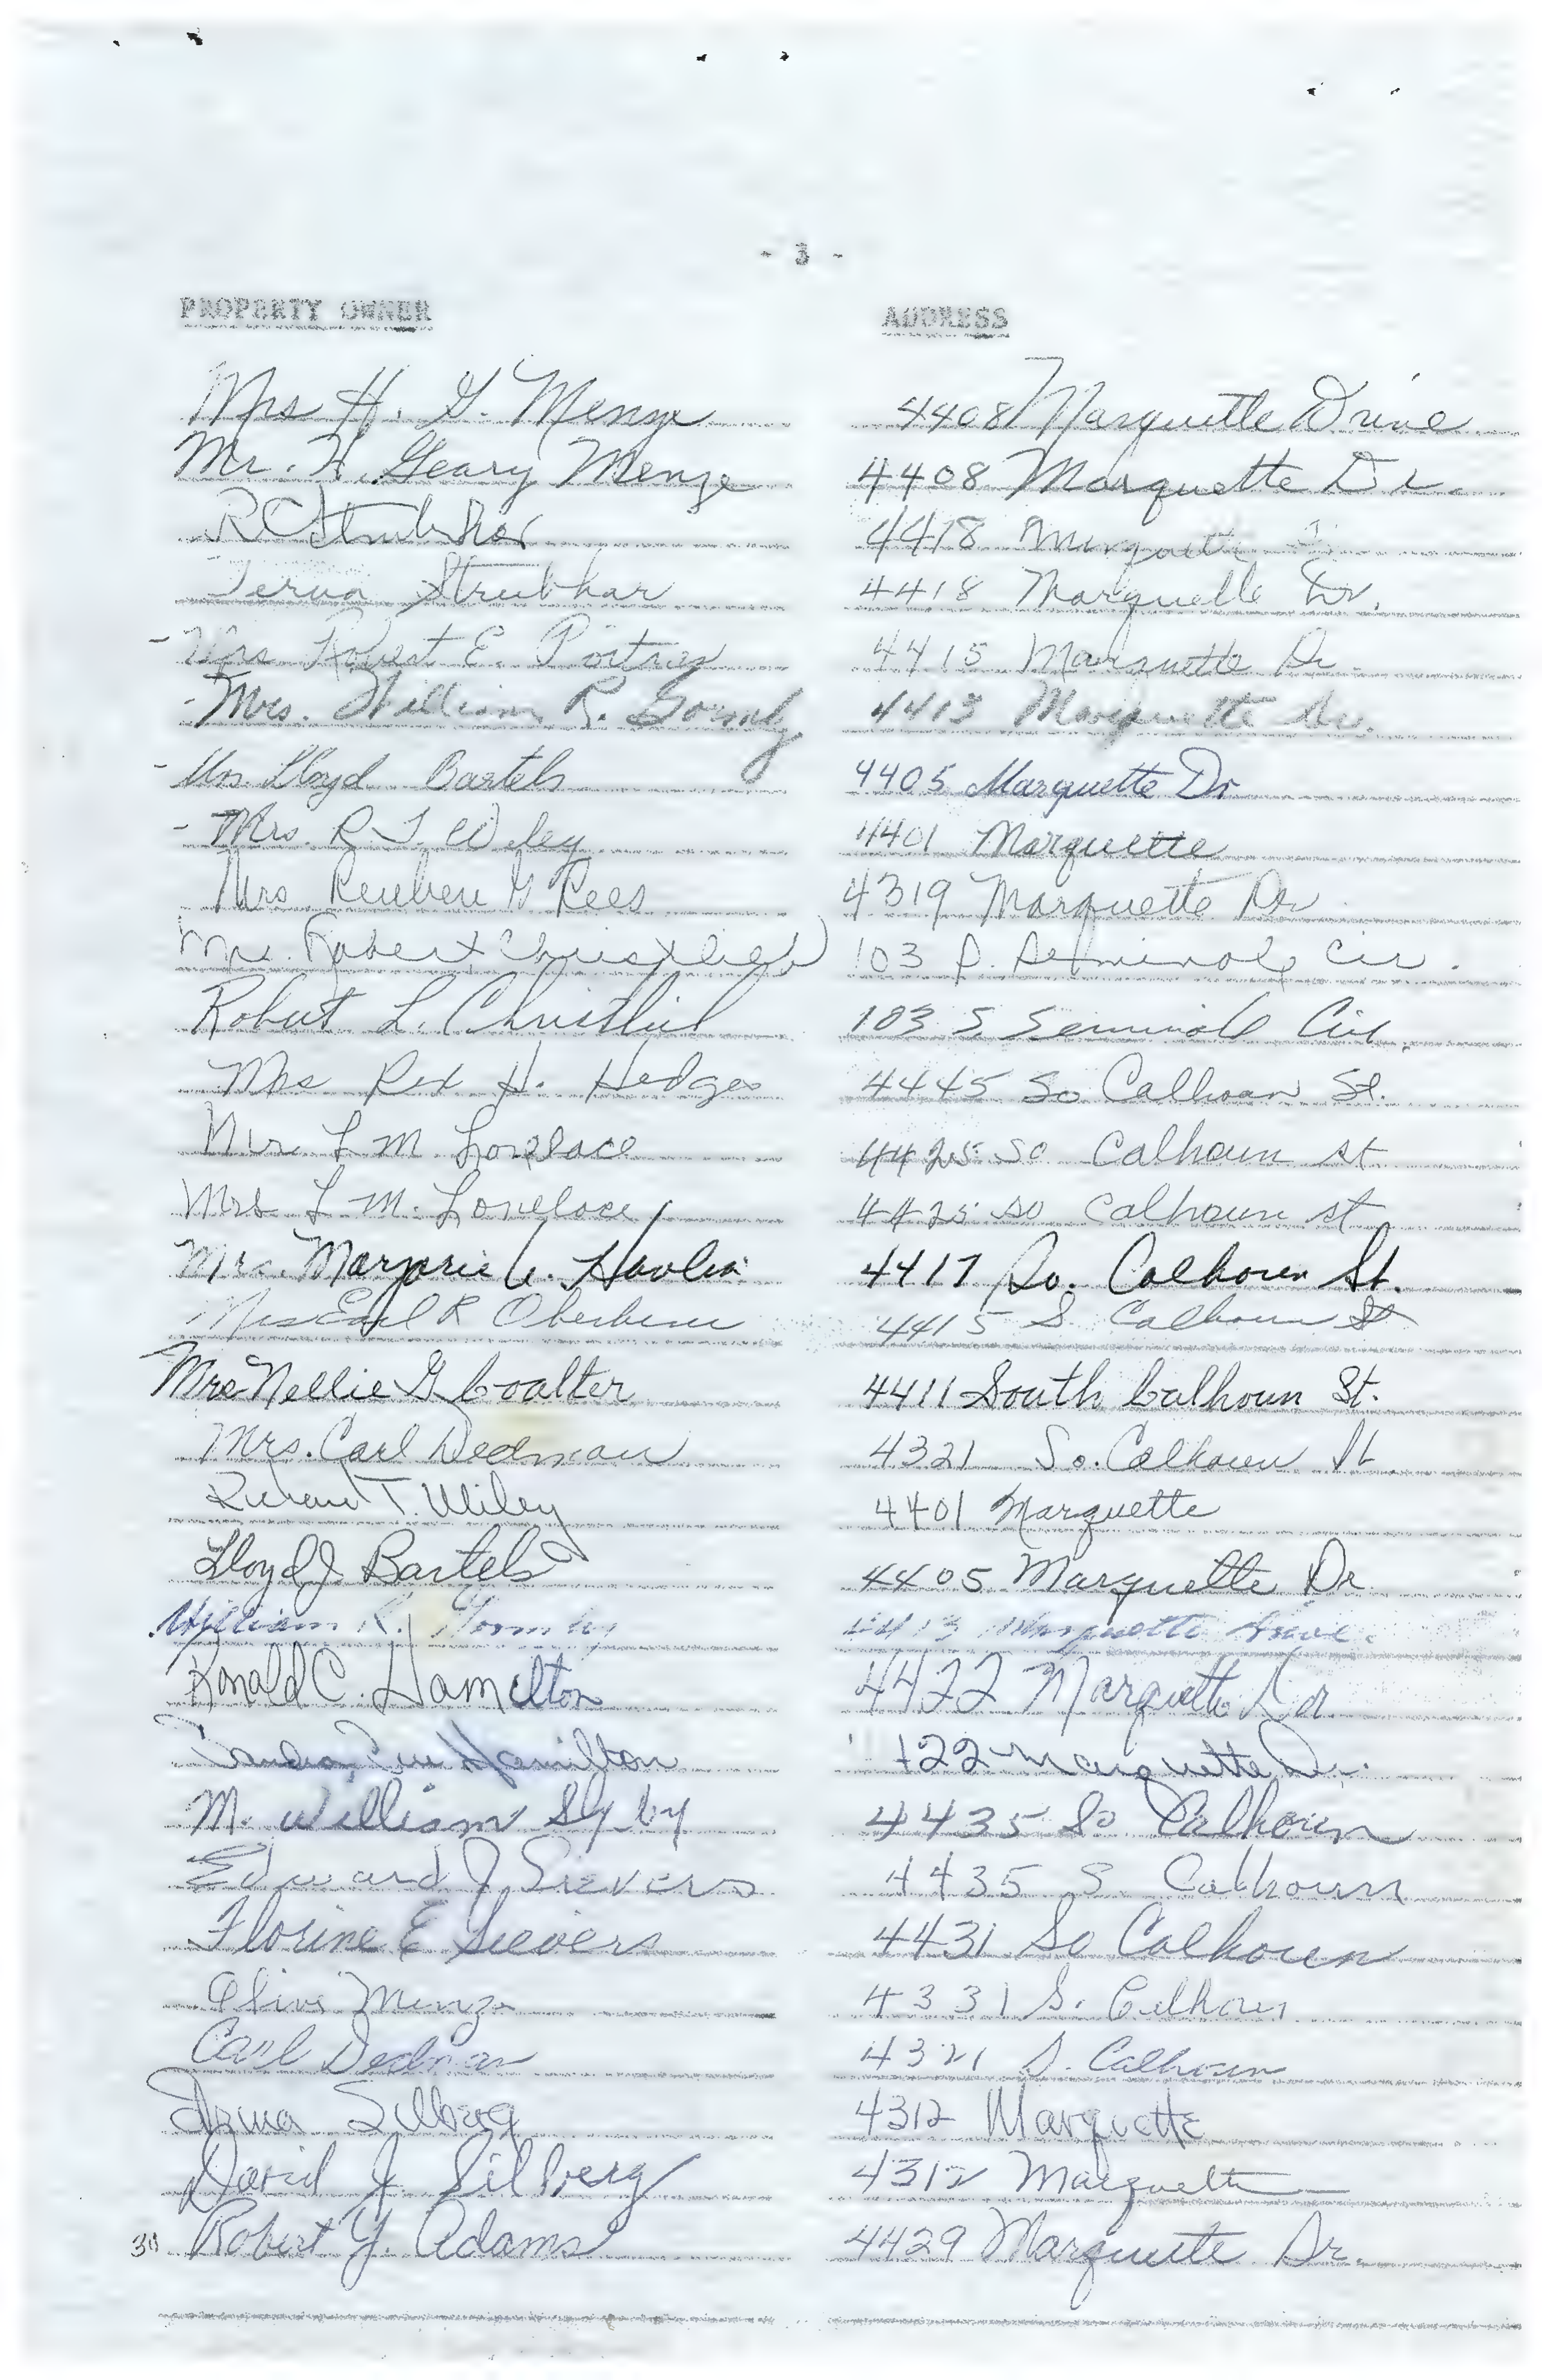 - 3 -
PROPERTY OWNER ADDRESS
Mrs H. G. Menze 4408 Marquette Drive
Mr. H. Geary Menze 4408 Marquette Dr.
R C Strubhar 4418 Marquette
Strubhar 4418 Marquette Dr.
- Mrs Robert E. 4415 Marquette Dr.
- Mrs. William R. Gormly 4413 Marquette Dr.
- Mrs. Lloyd Bartels 4405 Marquette Dr
- Mrs. R T Wiley 4401 Marquette
Mrs. Reuben G Rees 4319 Marquette Dr
Mrs. Robert Christlieb 103 S. Seminole Cir.
Robert L. Christlieb 103 S Seminole Cir.
Mrs Rex H. Hedges 4445 So Calhoun St.
Mr. L M. Lovelace 4425 So Calhoun st
Mrs L M. Lovelace 4425 so Calhoun st
Mrs. Marjorie 4417 So. Calhoun St.
Mrs Earl R 4415 S. Calhoun St
Mrs Nellie G Coalter 4411 South Calhoun St.
Mrs. Carl Dedman 4321 So. Calhoun St
Richard T. Wiley 4401 Marquette
Lloyd J Bartels 4405 Marquette Dr
William R. Gormly 4413 Marquette Drive.
Ronald C. Hamilton 4422 Marquette Dr
Sandra Sue Hamilton 422 Marquette Dr.
M. William 4435 So Calhoun
Edward J Sievers 4435 S. Calhoun
Florine E Sievers 4431 So Calhoun
Olive Menze 4331 S. Calhoun
Carl Dedman 4321 S. Calhoun
Silberg 4312 Marquette
David J. Silberg 4312 Marquette
Robert Y. Adams 4429 Marquette Dr.